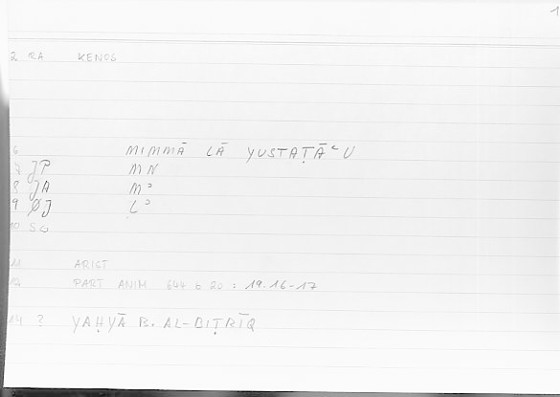 1
2 RA KENOS
6 MIMMĀ LĀ YUSTAṬĀʿU
7 JP MN
8 JA Mʾ
9 ØJ Lʾ
10 S
11 ARIST
12 PART ANIM 644 b 20 : 19.16-17
14 ? YAḤYĀ B. AL-BIṬRĪQ